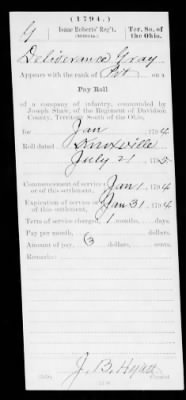 (1794.)
G Isaac Roberts' Reg't. Ter. So. of the Ohio.
(Militia.)
Deliverance Gray
Appears with the rank of Pvt on a
Pay Roll
of a company of infantry, commanded by
Joseph Shaw, of the Regiment of Davidson
County, Territory South of the Ohio,
for Jan, 1794
Roll dated Knoxville
July 21, 1795
Commencement of service or of this settlement, Jan 1, 1794
Expiration of service or of this settlement, Jan 31, 1794
Term of service charged, 1 months, days.
Pay per month, dollars, cents.
Amount of pay, 3 dollars, cents.
Remarks:
J. B. Hyatt
Copyist.